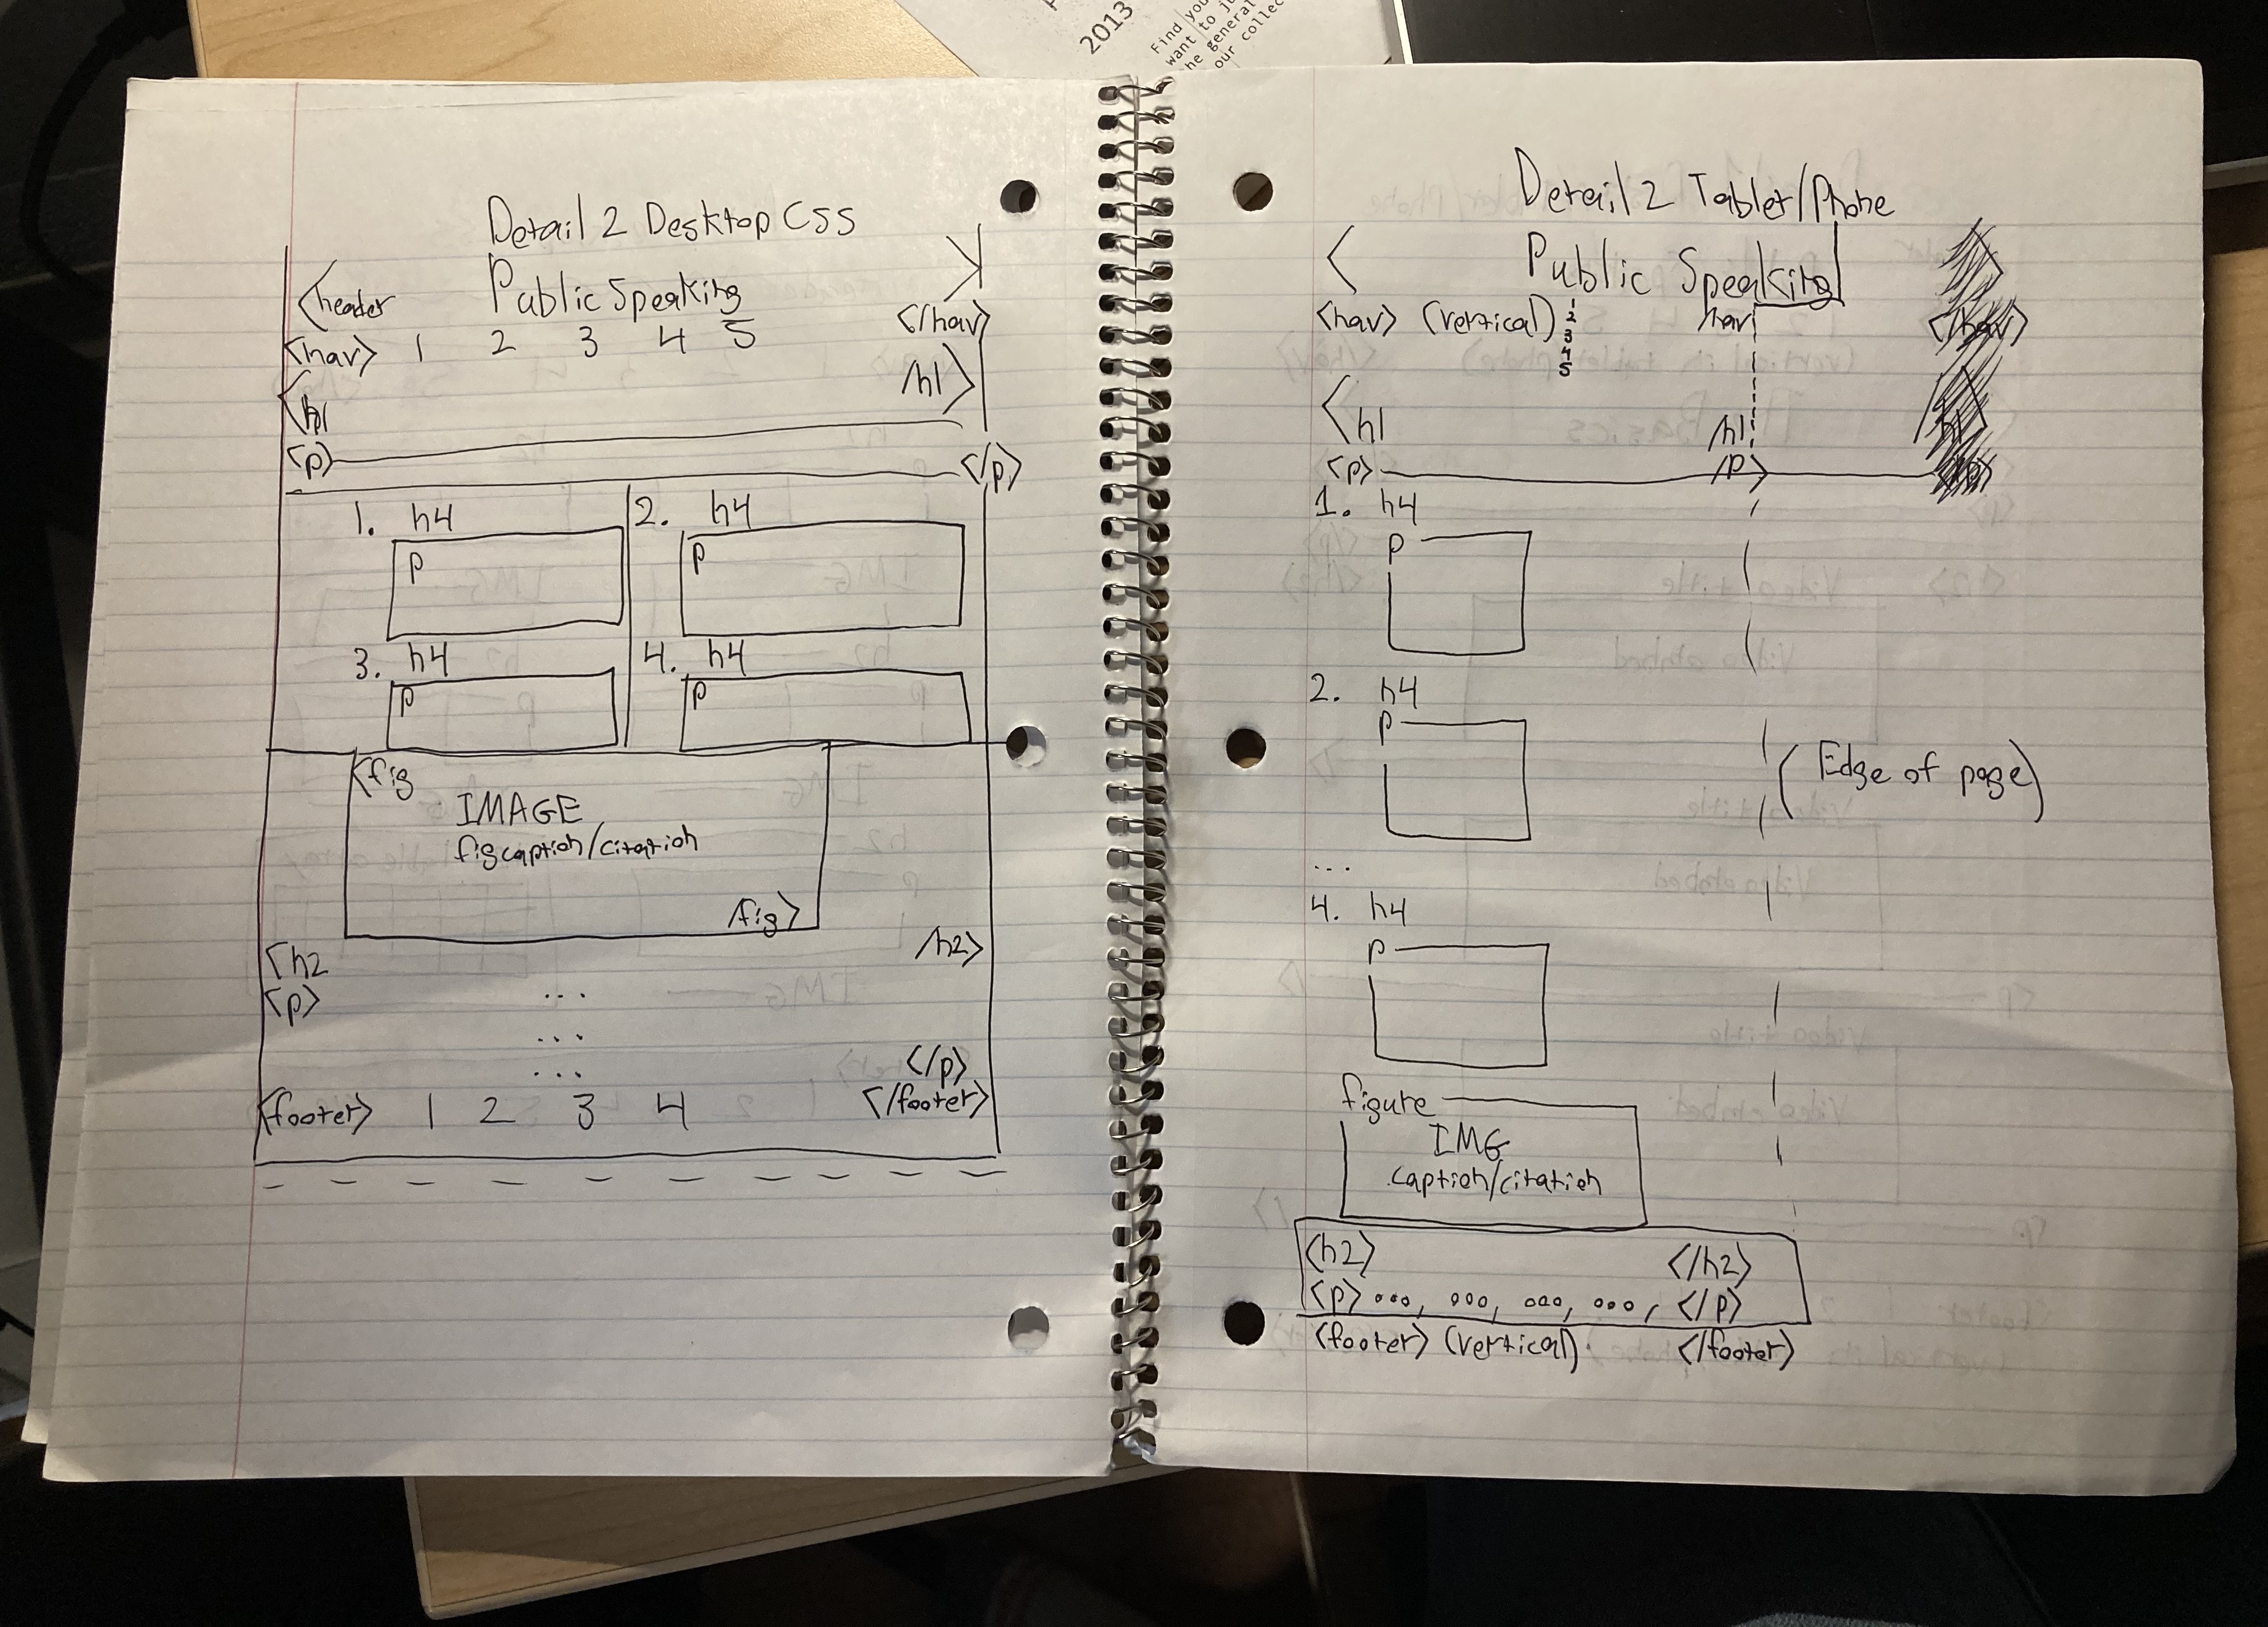 2013
Find you
want to ju
he general
our collec
Detail 2 Desktop CSS
<header Public Speaking >
<nav> 1 2 3 4 5 </nav>
<h1 /h1>
<p> </p>
1. h4 2. h4
p p
3. h4 4. h4
p p
<fig
IMAGE
figcaption/citation
/fig>
<h2 /h2>
<p> ...
...
... </p>
<footer> 1 2 3 4 </footer>
Detail 2 Tablet/Phone
< Public Speaking
<nav> (vertical) 1 /nav </nav>
2
3
4
5
<h1 /h1
<p> /p>
1. h4
p
2. h4
p
(Edge of page)
...
4. h4
p
figure
IMG
caption/citation
<h2> </h2>
<p> ..., ..., ..., ..., </p>
<footer> (vertical) </footer>